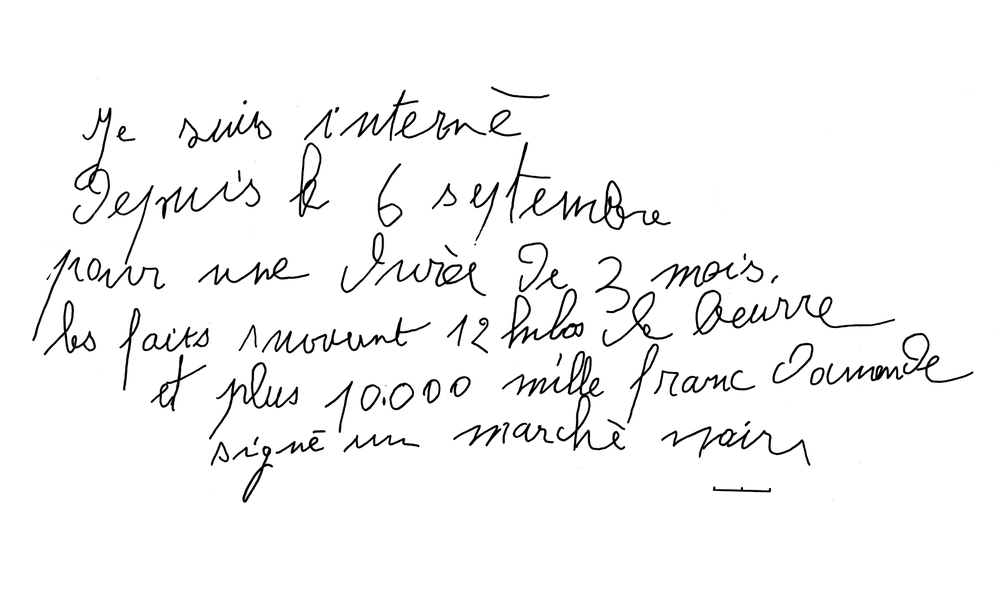 Je suis internē
Depuis le 6 septembre
pour une durèe de 3 mois.
les faits suovunt 12 kilos de beurre
et plus 10.000 mille franc damande
signē un marchè noir